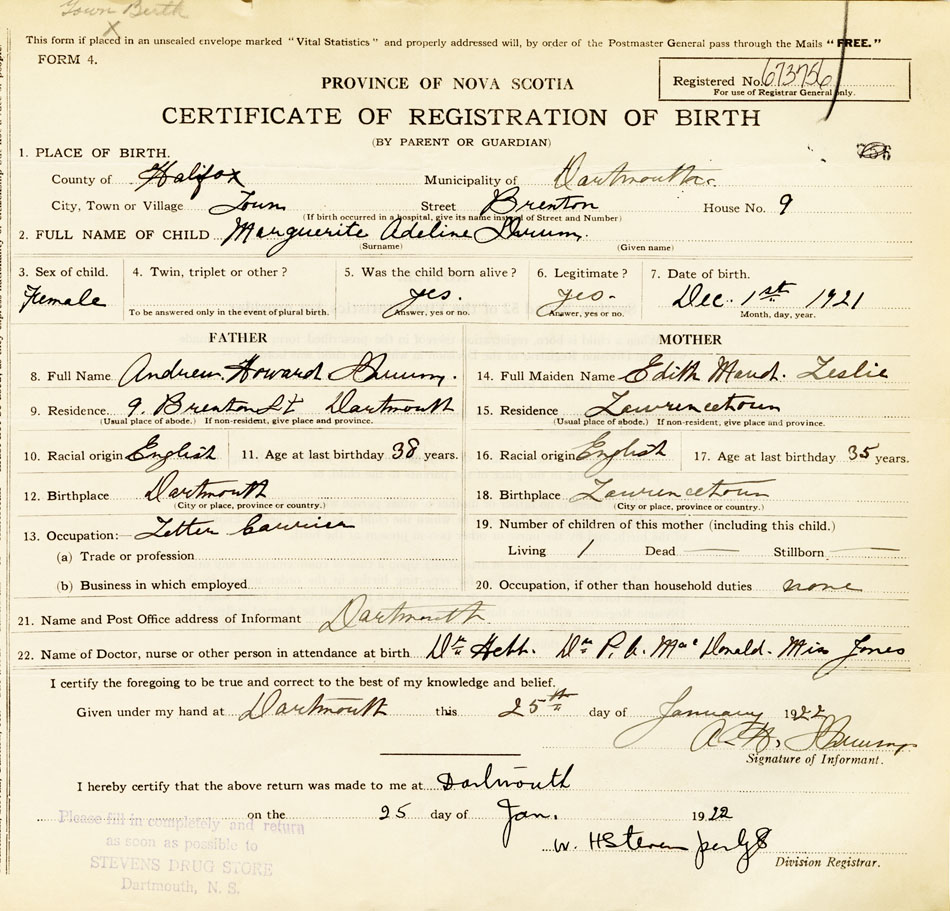 Town Birth
X
This form if placed in an unsealed envelope marked "Vital Statistics" and properly addressed will, by order of the Postmaster General pass through the Mails "FREE."
FORM 4.
Registered No. 673756
For use of Registrar General only.
PROVINCE OF NOVA SCOTIA
CERTIFICATE OF REGISTRATION OF BIRTH
(BY PARENT OR GUARDIAN)
1. PLACE OF BIRTH.
County of Halifax Municipality of Dartmouth
City, Town or Village Town Street Brenton House No. 9
(If birth occurred in a hospital, give its name instead of Street and Number)
2. FULL NAME OF CHILD Marguerite Adeline
(Surname) (Given name)
3. Sex of child. 4. Twin, triplet or other? 5. Was the child born alive? 6. Legitimate? 7. Date of birth.
Female yes. yes. Dec. 1st 1921
To be answered only in the event of plural birth. Answer, yes or no. Answer, yes or no. Month, day, year.
FATHER MOTHER
8. Full Name Andrew Howard 14. Full Maiden Name Edith Maud. Leslie
9. Residence 9. Brenton St Dartmouth 15. Residence Lawrencetown
(Usual place of abode.) If non-resident, give place and province. (Usual place of abode.) If non-resident, give place and province.
10. Racial origin English 11. Age at last birthday 38 years. 16. Racial origin English 17. Age at last birthday 35 years.
12. Birthplace Dartmouth 18. Birthplace Lawrencetown
(City or place, province or country.) (City or place, province or country.)
13. Occupation:— Letter Carrier 19. Number of children of this mother (including this child.)
(a) Trade or profession Living 1 Dead — Stillborn —
(b) Business in which employed 20. Occupation, if other than household duties none
21. Name and Post Office address of Informant Dartmouth
22. Name of Doctor, nurse or other person in attendance at birth Dr Hebb. Dr P. A. MacDonald. Miss Jones
I certify the foregoing to be true and correct to the best of my knowledge and belief.
Given under my hand at Dartmouth this 25th day of January 1922
A. H.
Signature of Informant.
I hereby certify that the above return was made to me at Dartmouth
on the 25 day of Jan. 1922
W. H Stevens per
Division Registrar.
Please fill in completely and return
as soon as possible to
STEVENS DRUG STORE
Dartmouth, N. S.